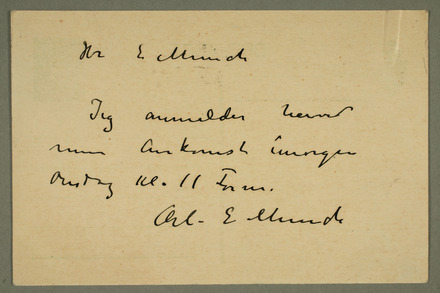 Hr E Munch
Jeg anmelder herved
min Ankomst imorgen
Onsdag Kl. 11 Form.
Erb. E Munch